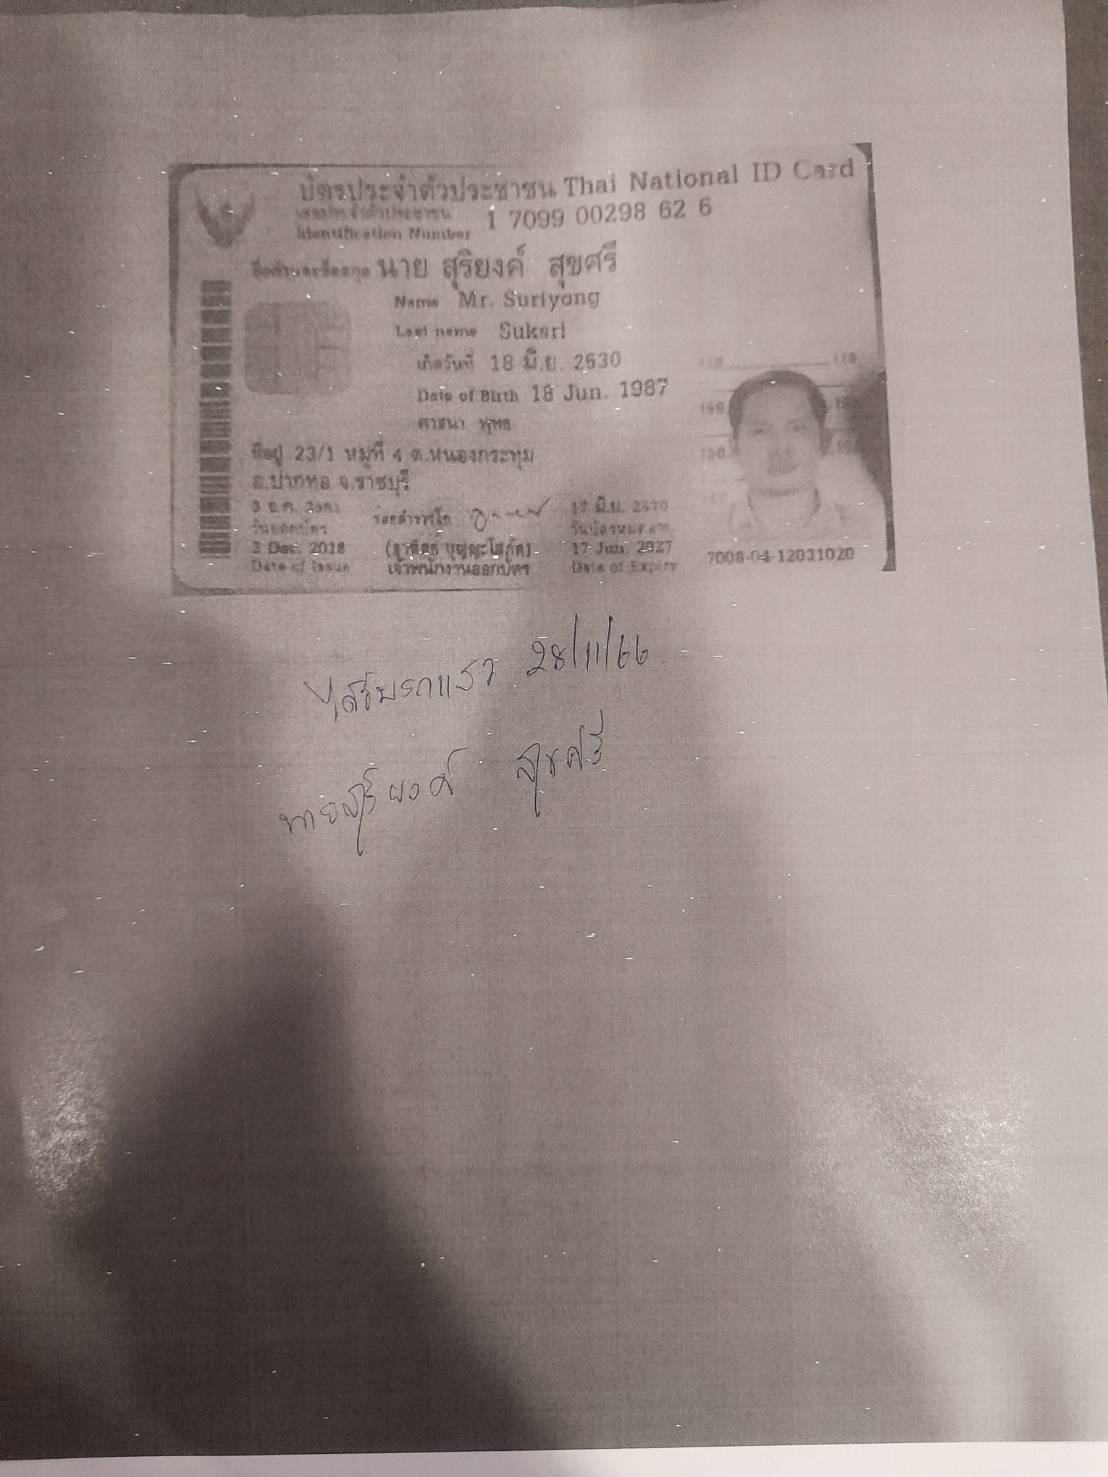 บัตรประจำตัวประชาชน Thai National ID Card
เลขประจำตัวประชาชน 1 7099 00298 62 6
Identification Number
ชื่อตัวและชื่อสกุล นาย สุริยงค์ สุขศรี
Name Mr. Suriyong
Last name Suksri
เกิดวันที่ 18 มิ.ย. 2530
Date of Birth 18 Jun. 1987
ศาสนา พุทธ
ที่อยู่ 23/1 หมู่ที่ 4 ต.หนองกระทุ่ม
อ.ปากท่อ จ.ราชบุรี
3 ธ.ค. 2561
วันออกบัตร
3 Dec. 2018
Date of Issue
ร้อยตำรวจโท
เจ้าพนักงานออกบัตร
17 มิ.ย. 2570
วันบัตรหมดอายุ
17 Jun. 2027
Date of Expiry
7008-04-12031020
ได้รับรถแล้ว 28/11/66
นายสุริยงค์ สุขศรี